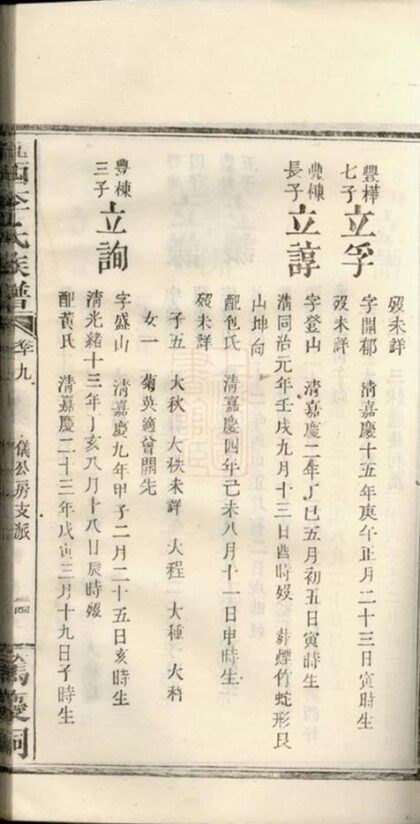 豐樺七子
立孚
字開郁 清嘉慶十五年庚午正月二十三日寅時生
歿未詳
歿未詳
豐棟長子
立諄
字登山 清嘉慶二年丁巳五月初五日寅時生
清同治元年壬戌九月十三日酉時歿 葬煙竹蛇形艮
山坤向
配包氏 清嘉慶四年己未八月十一日申時生
歿未詳
子五 大秋 大秩未詳 大程 大種 大科
女一 菊英適曾開先
豐棟三子
立詢
字盛山 清嘉慶九年甲子二月二十五日亥時生
清光緒十三年丁亥八月十八日辰時歿
配黃氏 清嘉慶二十三年戊寅三月十九日子時生
西李氏族譜
卷九
儀公房支派
一四
慶祠